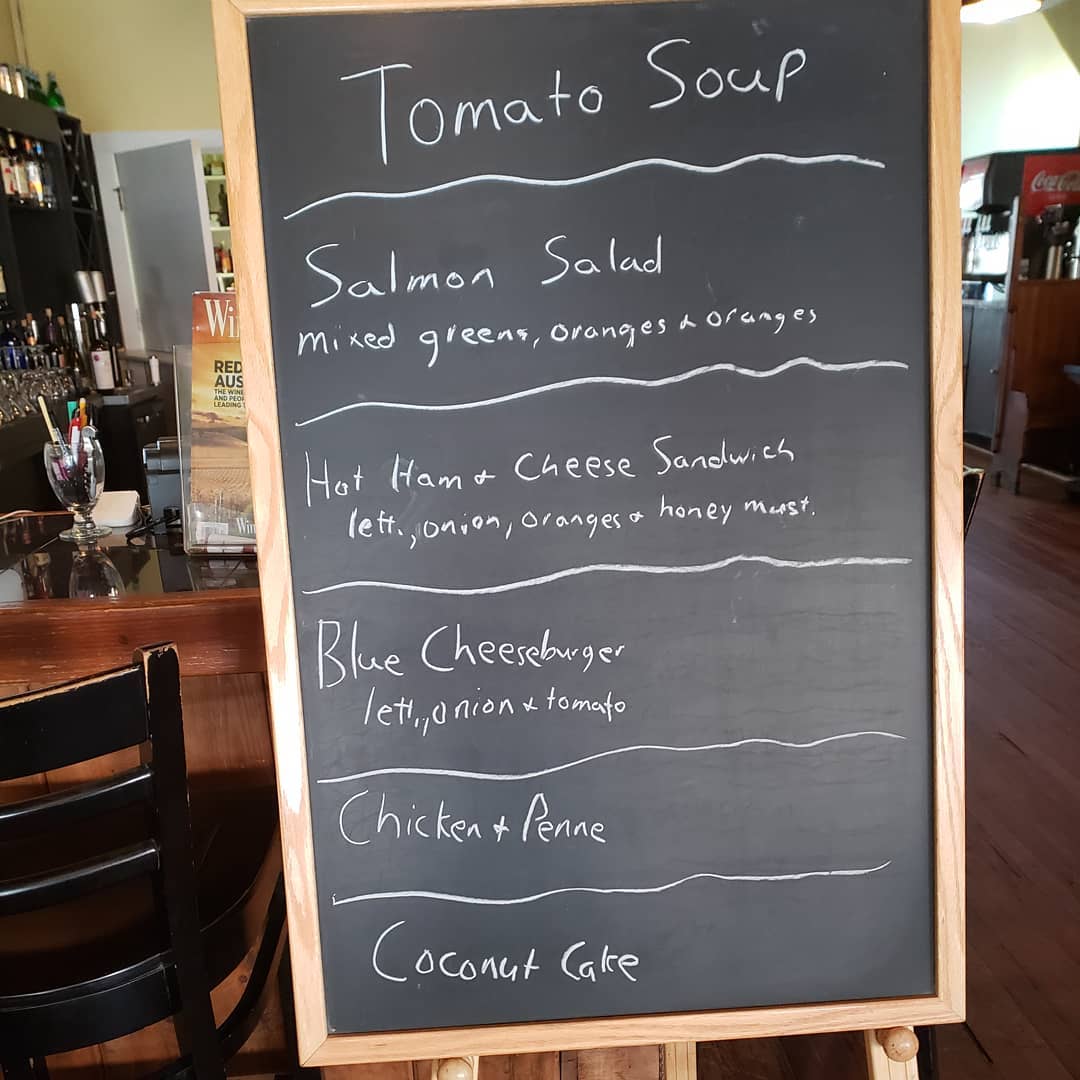 Tomato Soup
Salmon Salad
mixed greens, oranges & oranges
Hot Ham & Cheese Sandwich
lett., onion, oranges & honey must.
Blue Cheeseburger
lett., onion & tomato
Chicken & Penne
Coconut Cake
Wi
RED
AUS
THE WINE
AND PEOP
LEADING
Win
Coca-Co